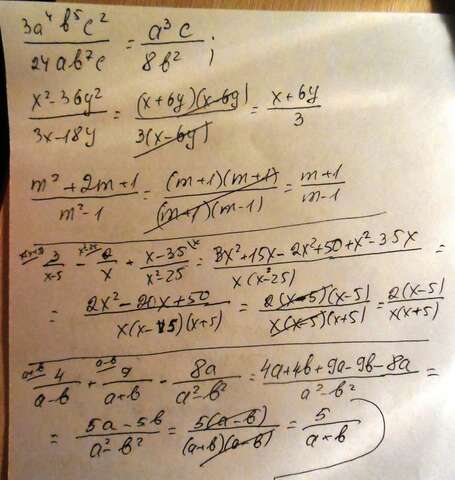 3a⁴b⁵c²/24ab⁷c = a³c/8b²;
x²-36y²/3x-18y = (x+6y)(x-6y)/3(x-6y) = x+6y/3
m²+2m+1/m²-1 = (m+1)(m+1)/(m+1)(m-1) = m+1/m-1
3/x-5 - 2/x + x-35/x²-25 = 3x²+15x-2x²+50+x²-35x/x(x²-25) =
= 2x²-20x+50/x(x-5)(x+5) = 2(x-5)(x-5)/x(x-5)(x+5) = 2(x-5)/x(x+5)
4/a-b + 9/a+b - 8a/a²-b² = 4a+4b+9a-9b-8a/a²-b² =
= 5a-5b/a²-b² = 5(a-b)/(a+b)(a-b) = 5/a+b